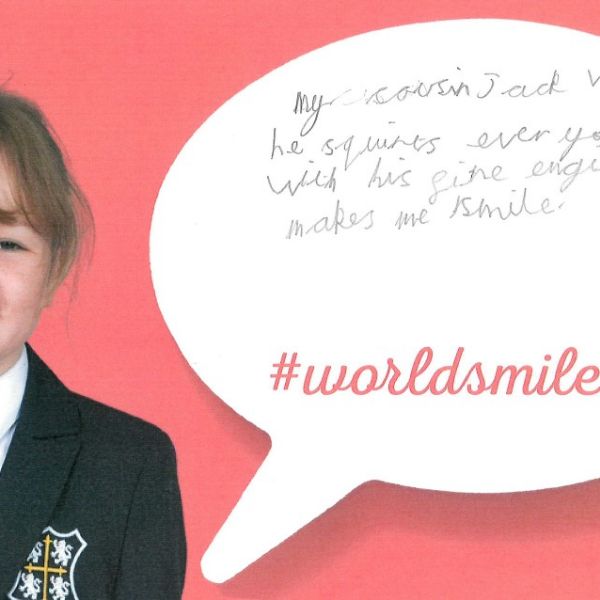 My cousin Jack
he squirts ever yo
with his gire engi
makes me smile.
#worldsmile